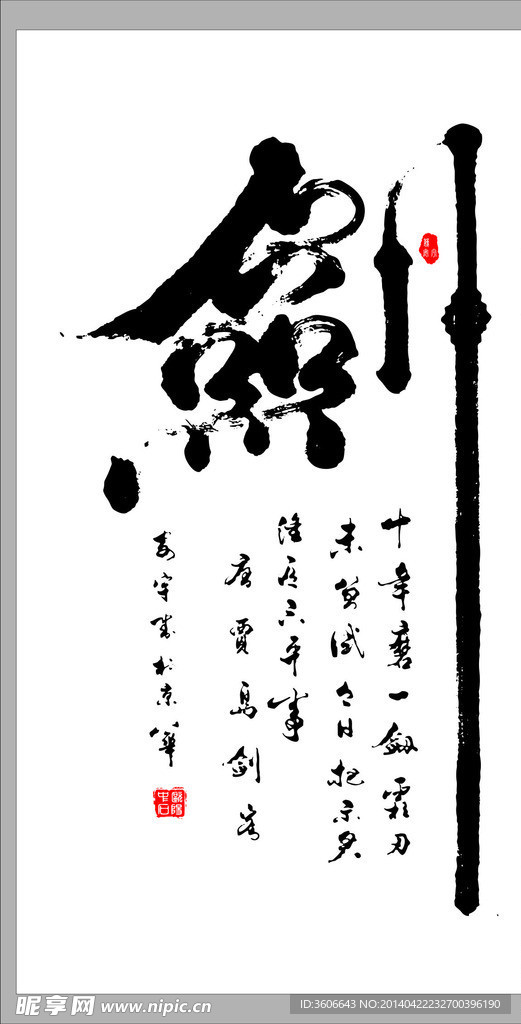 劍
十年磨一劍霜刃
未曾試今日把示君
誰有不平事
唐賈島劍客
於京華
昵享网 www.nipic.cn
ID:3606643 NO:20140422232700396190